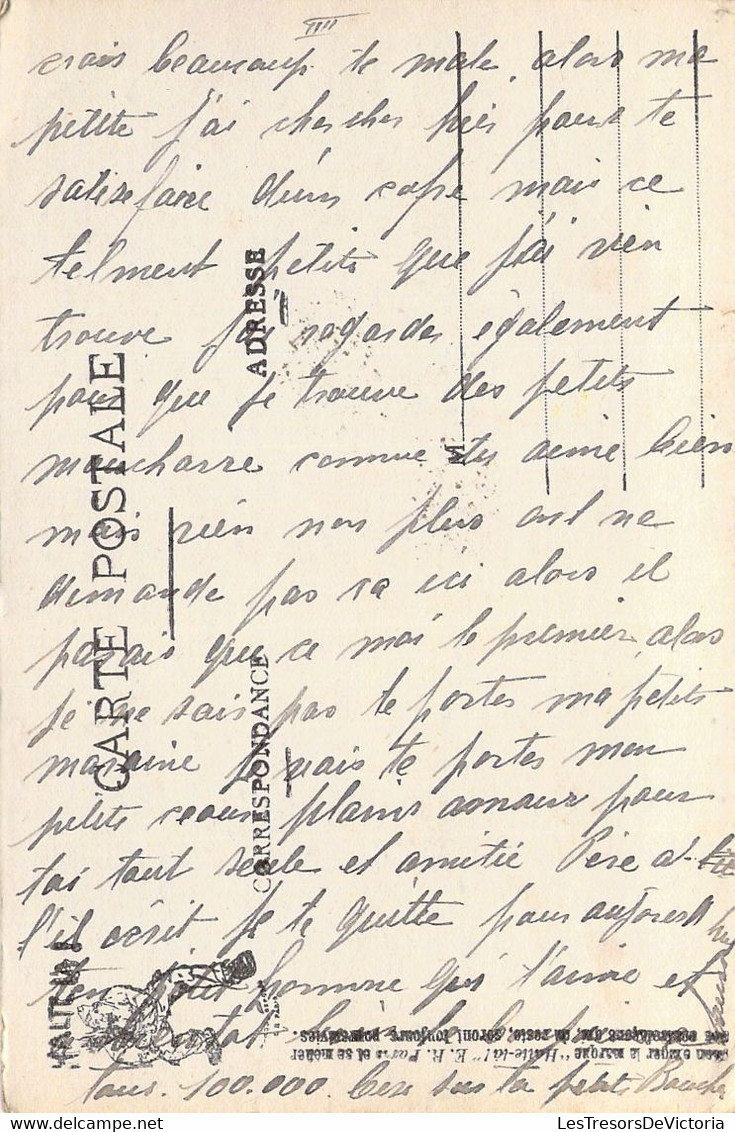 IIII
crois beaucoup te male, alors ma
petite j'ai chercher hier pour te
satisfaire d'un cafre mais ce
telment petits que j'ai rien
trouve j'ai regarder également
pour que je trouve des petits
moucharre comme tu aime bien
mais rien non plus onl ne
demande pas sa ici alors il
parais que ce moi le premier, alors
je ne sais pas te portes ma petits
maraine je vais te portes mon
petits cœur plains amour pour
toi tout seule et amitié Père d'
l'il écrit je te quitte pour aujourd hui
ton petit homme qui t'aime et
bientot
tous. 100.000. sur ta petits Bouche
CARTE POSTALE
CORRESPONDANCE
ADRESSE
M
HALTE LÀ!
exiger la marque "Halte-là!" E. R. Paris et se méfier
des contrefaçons qui, du reste, seront toujours poursuivies.
LesTresorsDeVictoria